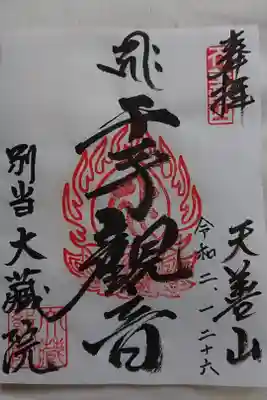 奉拝
天善山
令和二、一、二十六
千手觀音
別当 大藏院